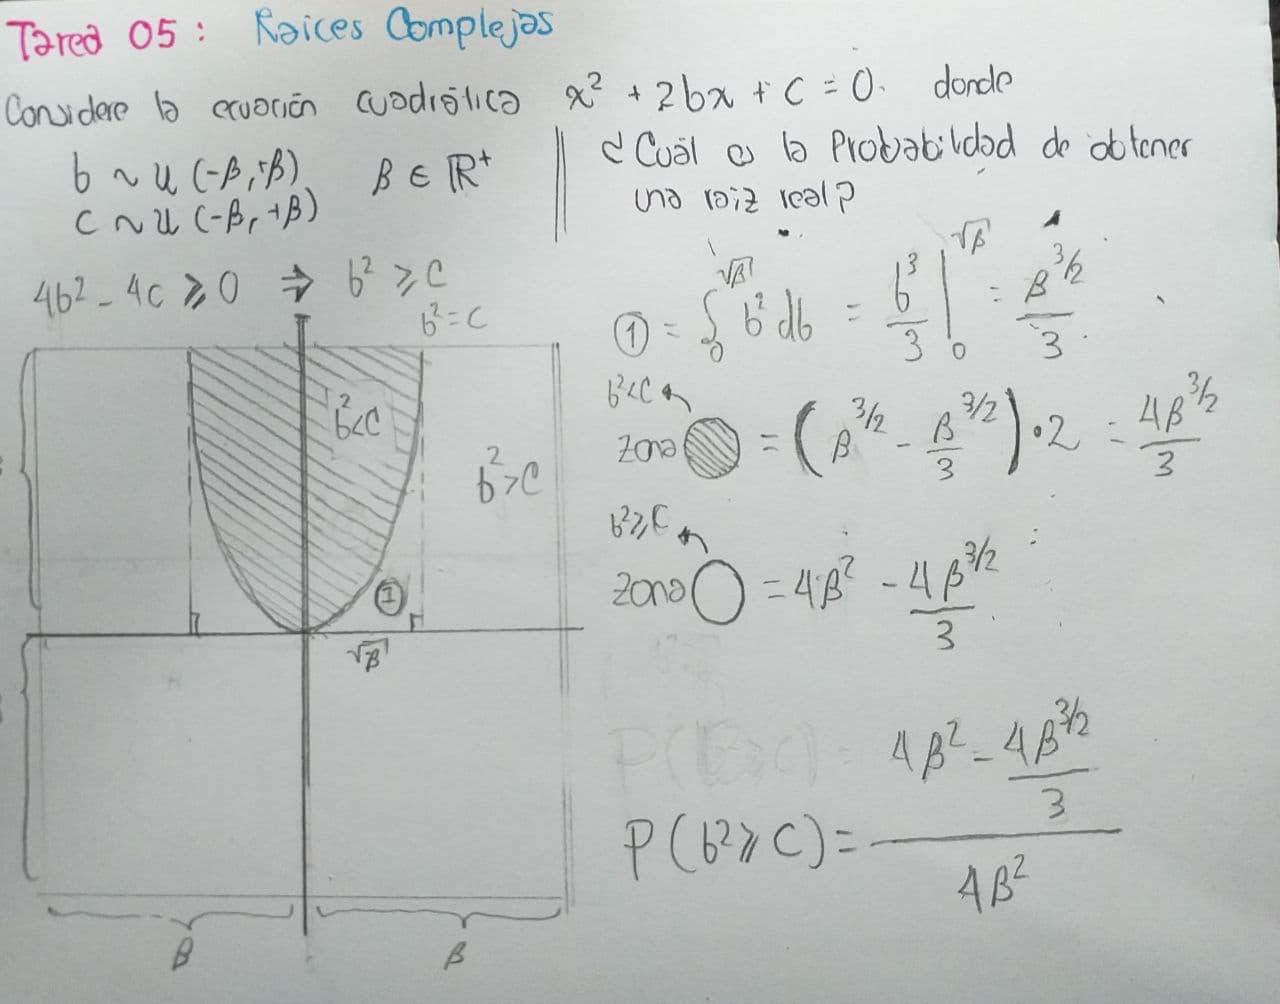 Tarea 05: Raices Complejas
Considere la ecuación cuadrática x² + 2bx + c = 0. donde
b ~ U(-β, +β)   β ∈ ℝ⁺
c ~ U(-β, +β)
¿Cuál es la Probabilidad de obtener
una raiz real?
4b² - 4c ≥ 0 ⇒ b² ≥ c
b² = c
b² < c
b² > c
①
√β
β
β
① = ∫₀^√β b² db = b³/3 |₀^√β = β^3/2 / 3
b² < c
Zona = (β^3/2 - β^3/2 / 3) · 2 = 4β^3/2 / 3
b² ≥ c
Zona = 4β² - 4β^3/2 / 3
P(b² ≥ c) = (4β² - 4β^3/2 / 3) / 4β²